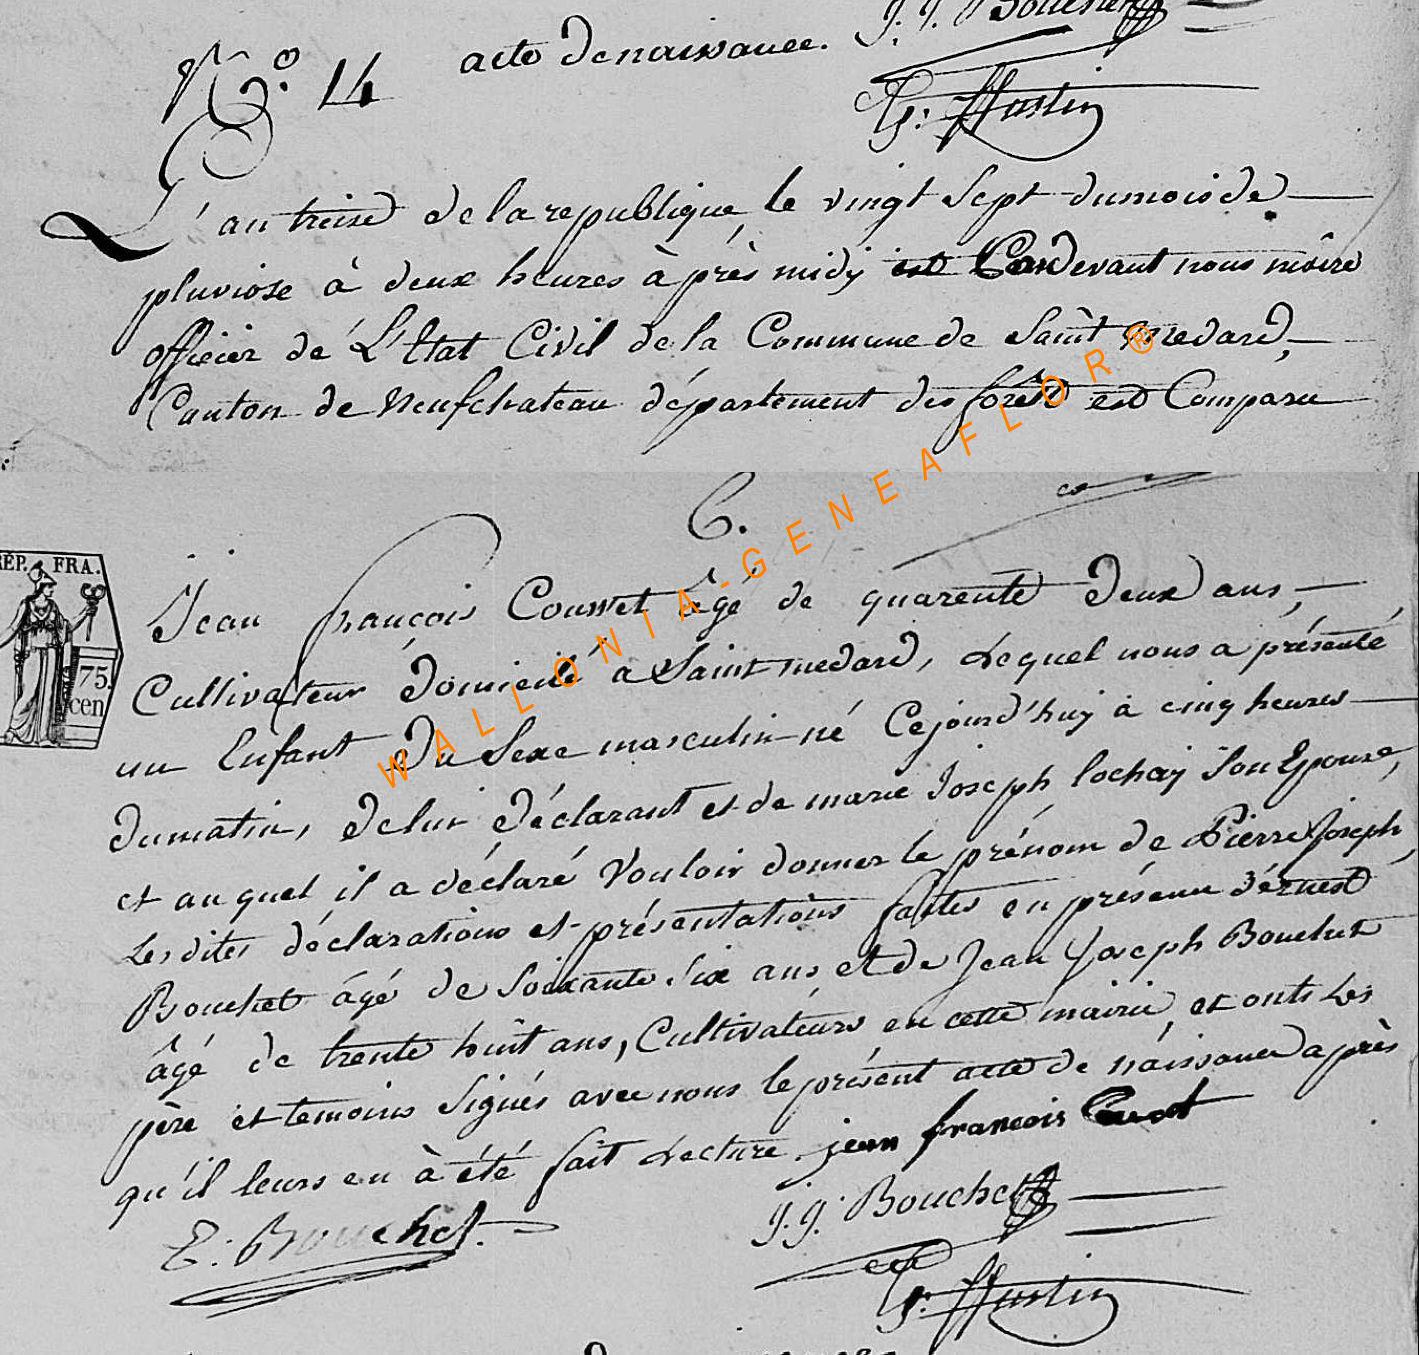 J. J. Bouchet
N.º 14 acte de naissance.
G: Hustin
L'an treize de la republique, le vingt sept du mois de
pluviose à deux heures àprès midy est Pardevant nous mâire
officier de L'Etat Civil de la Commune de Saint medard,
Canton de Neufchateau département des forêts est Comparu
6.
REP. FRA.
75.
cen
Jean françois Cousset âgé de quarente deux ans,
Cultivateur domicilié a Saint medard, Lequel nous a présenté
un Enfant du Sexe masculin né Cejourd'huy à cinq heures
du matin, de lui déclarant et de marie Joseph lochay Son Epouse,
et au quel il a déclaré Vouloir donner le prénom de Pierre Joseph,
Les dites déclarations et présentations faites en présence d'érnest
Bouchet âgé de Soixante Six ans, et de Jean Joseph Bouchet
âgé de trente huit ans, Cultivateurs en cette mairie, et onts Les
père et temoins Signés avec nous le présent acte de náissance après
qu'il leurs en à été fait Lecture. jean francois
E: Bouchet.
J. J. Bouchet
G: Hustin
WALLONIA-GENEAFLOR®